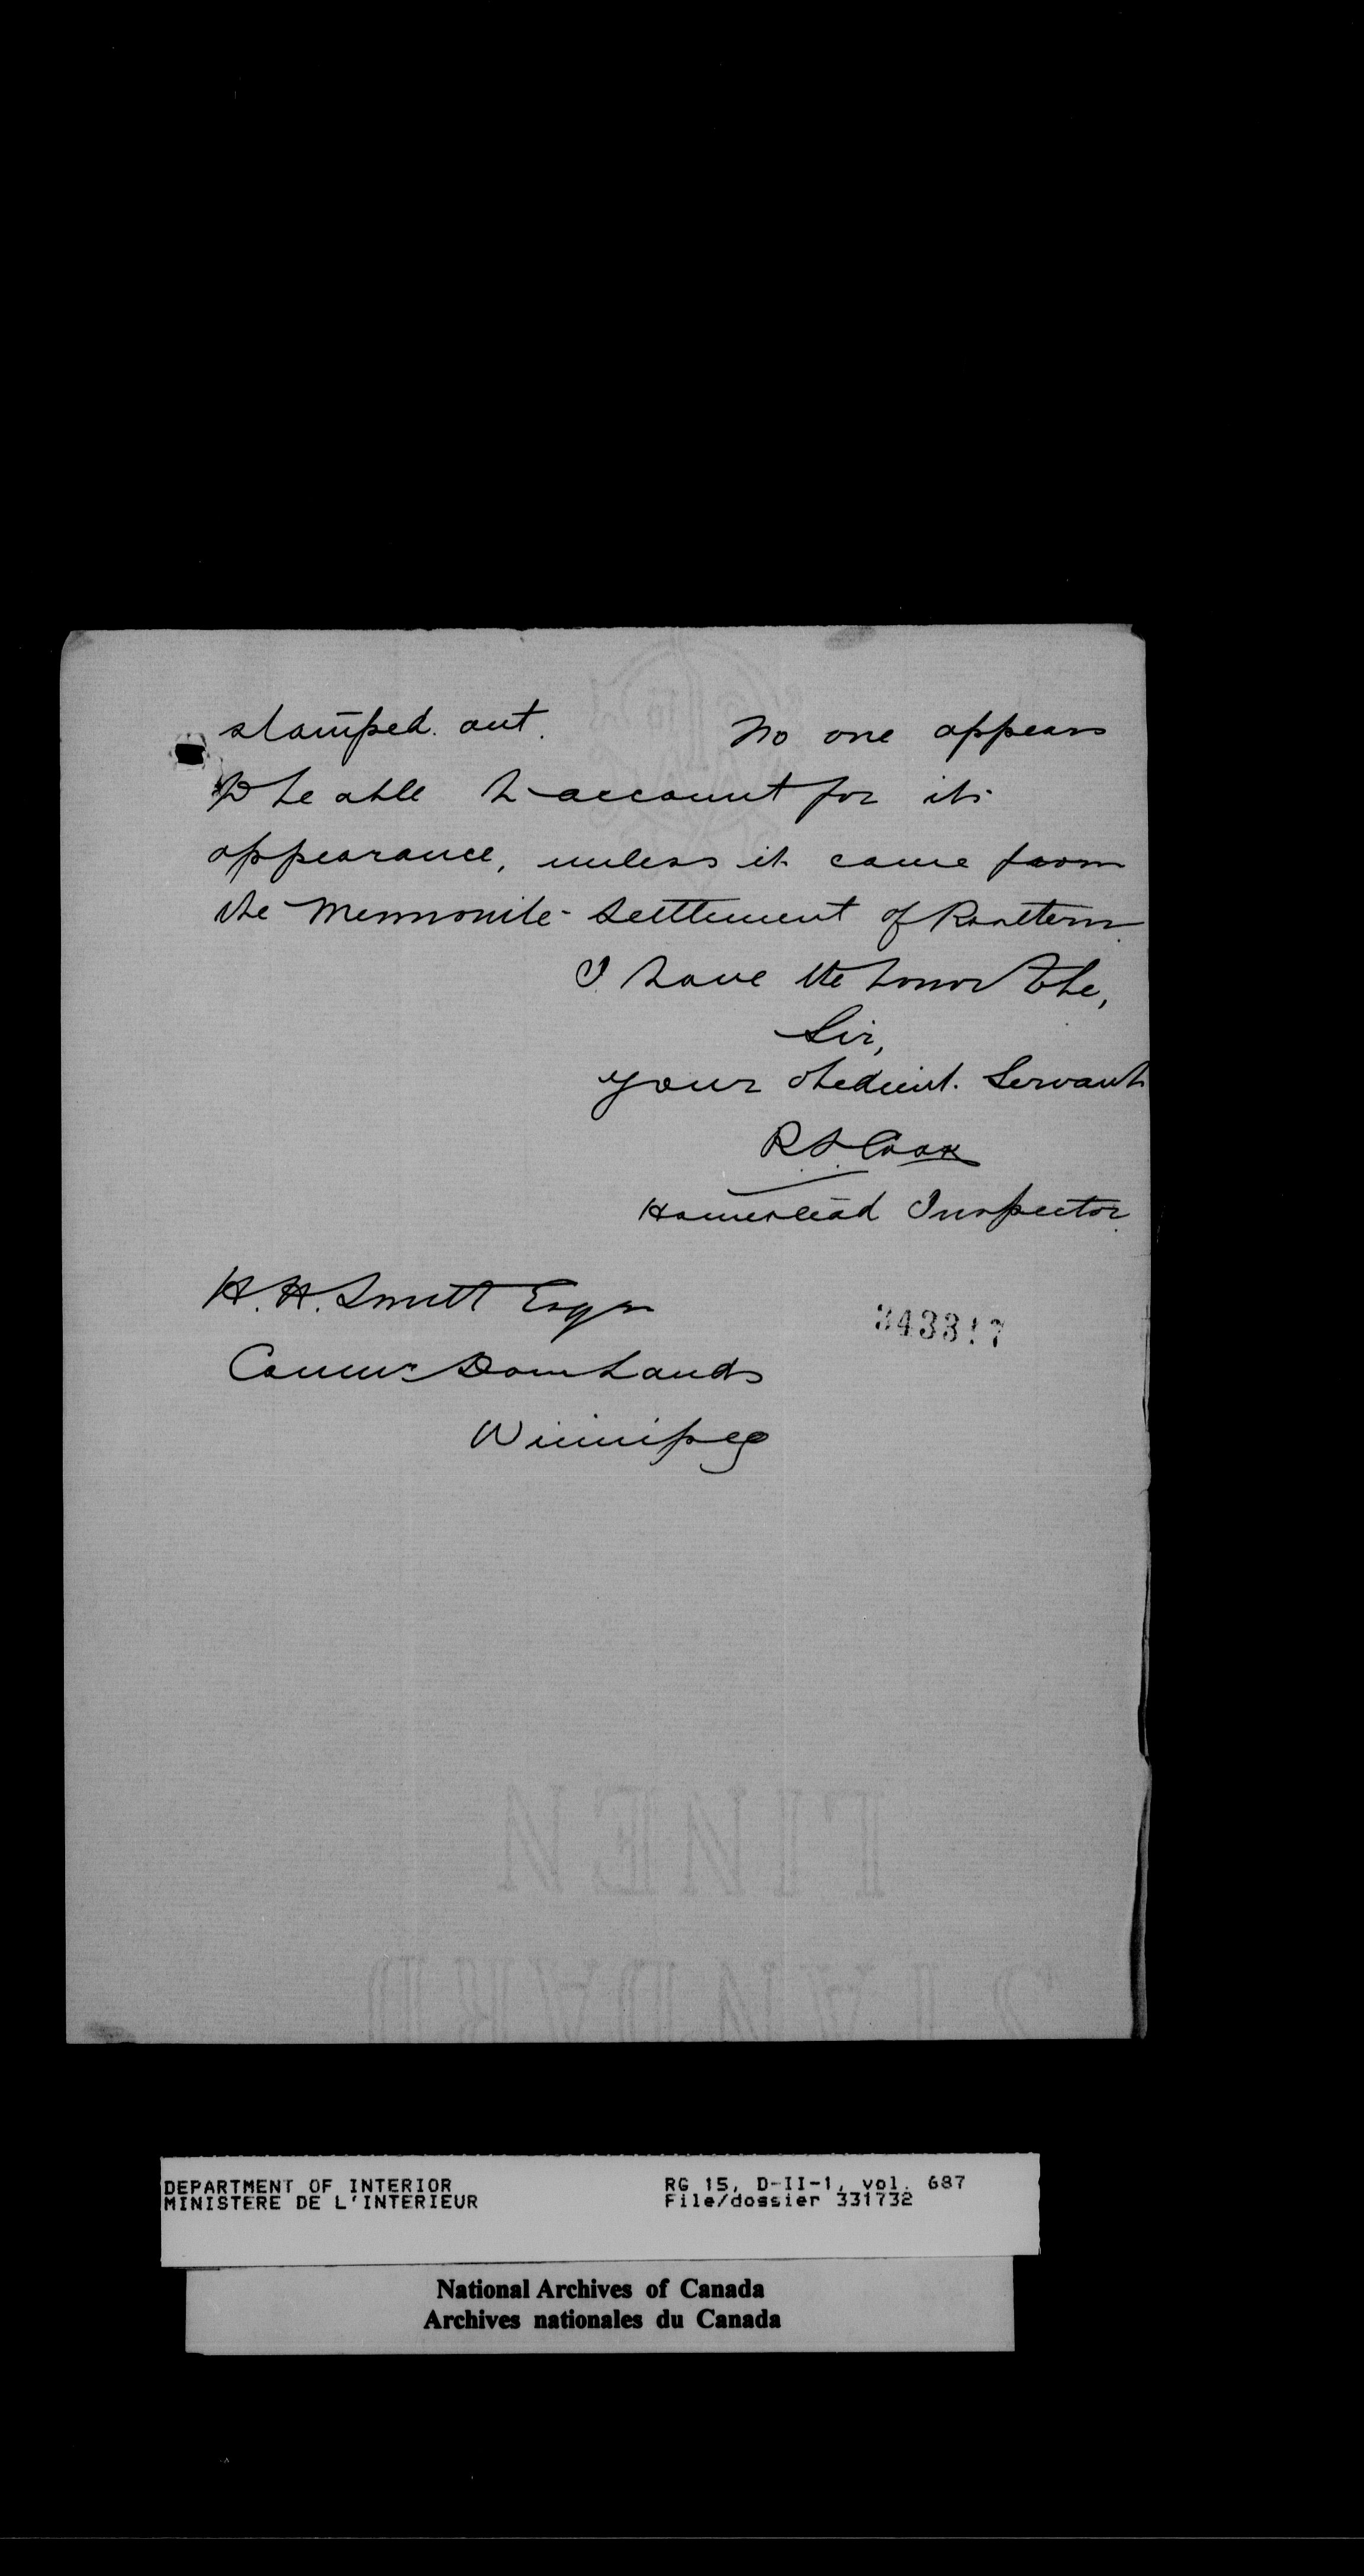 stamped out. No one appears
to be able to account for its
appearance, unless it came from
the Mennonite settlement of Rosthern
I have the honor to be,
Sir,
your obedient. Servant
R S Cook
Homestead Inspector
H. H. Smith Esqr
Commr Dom Lands
Winnipeg
343317
LINEN
STANDARD
DEPARTMENT OF INTERIOR RG 15, D-II-1, vol. 687
MINISTERE DE L'INTERIEUR File/dossier 331732
National Archives of Canada
Archives nationales du Canada